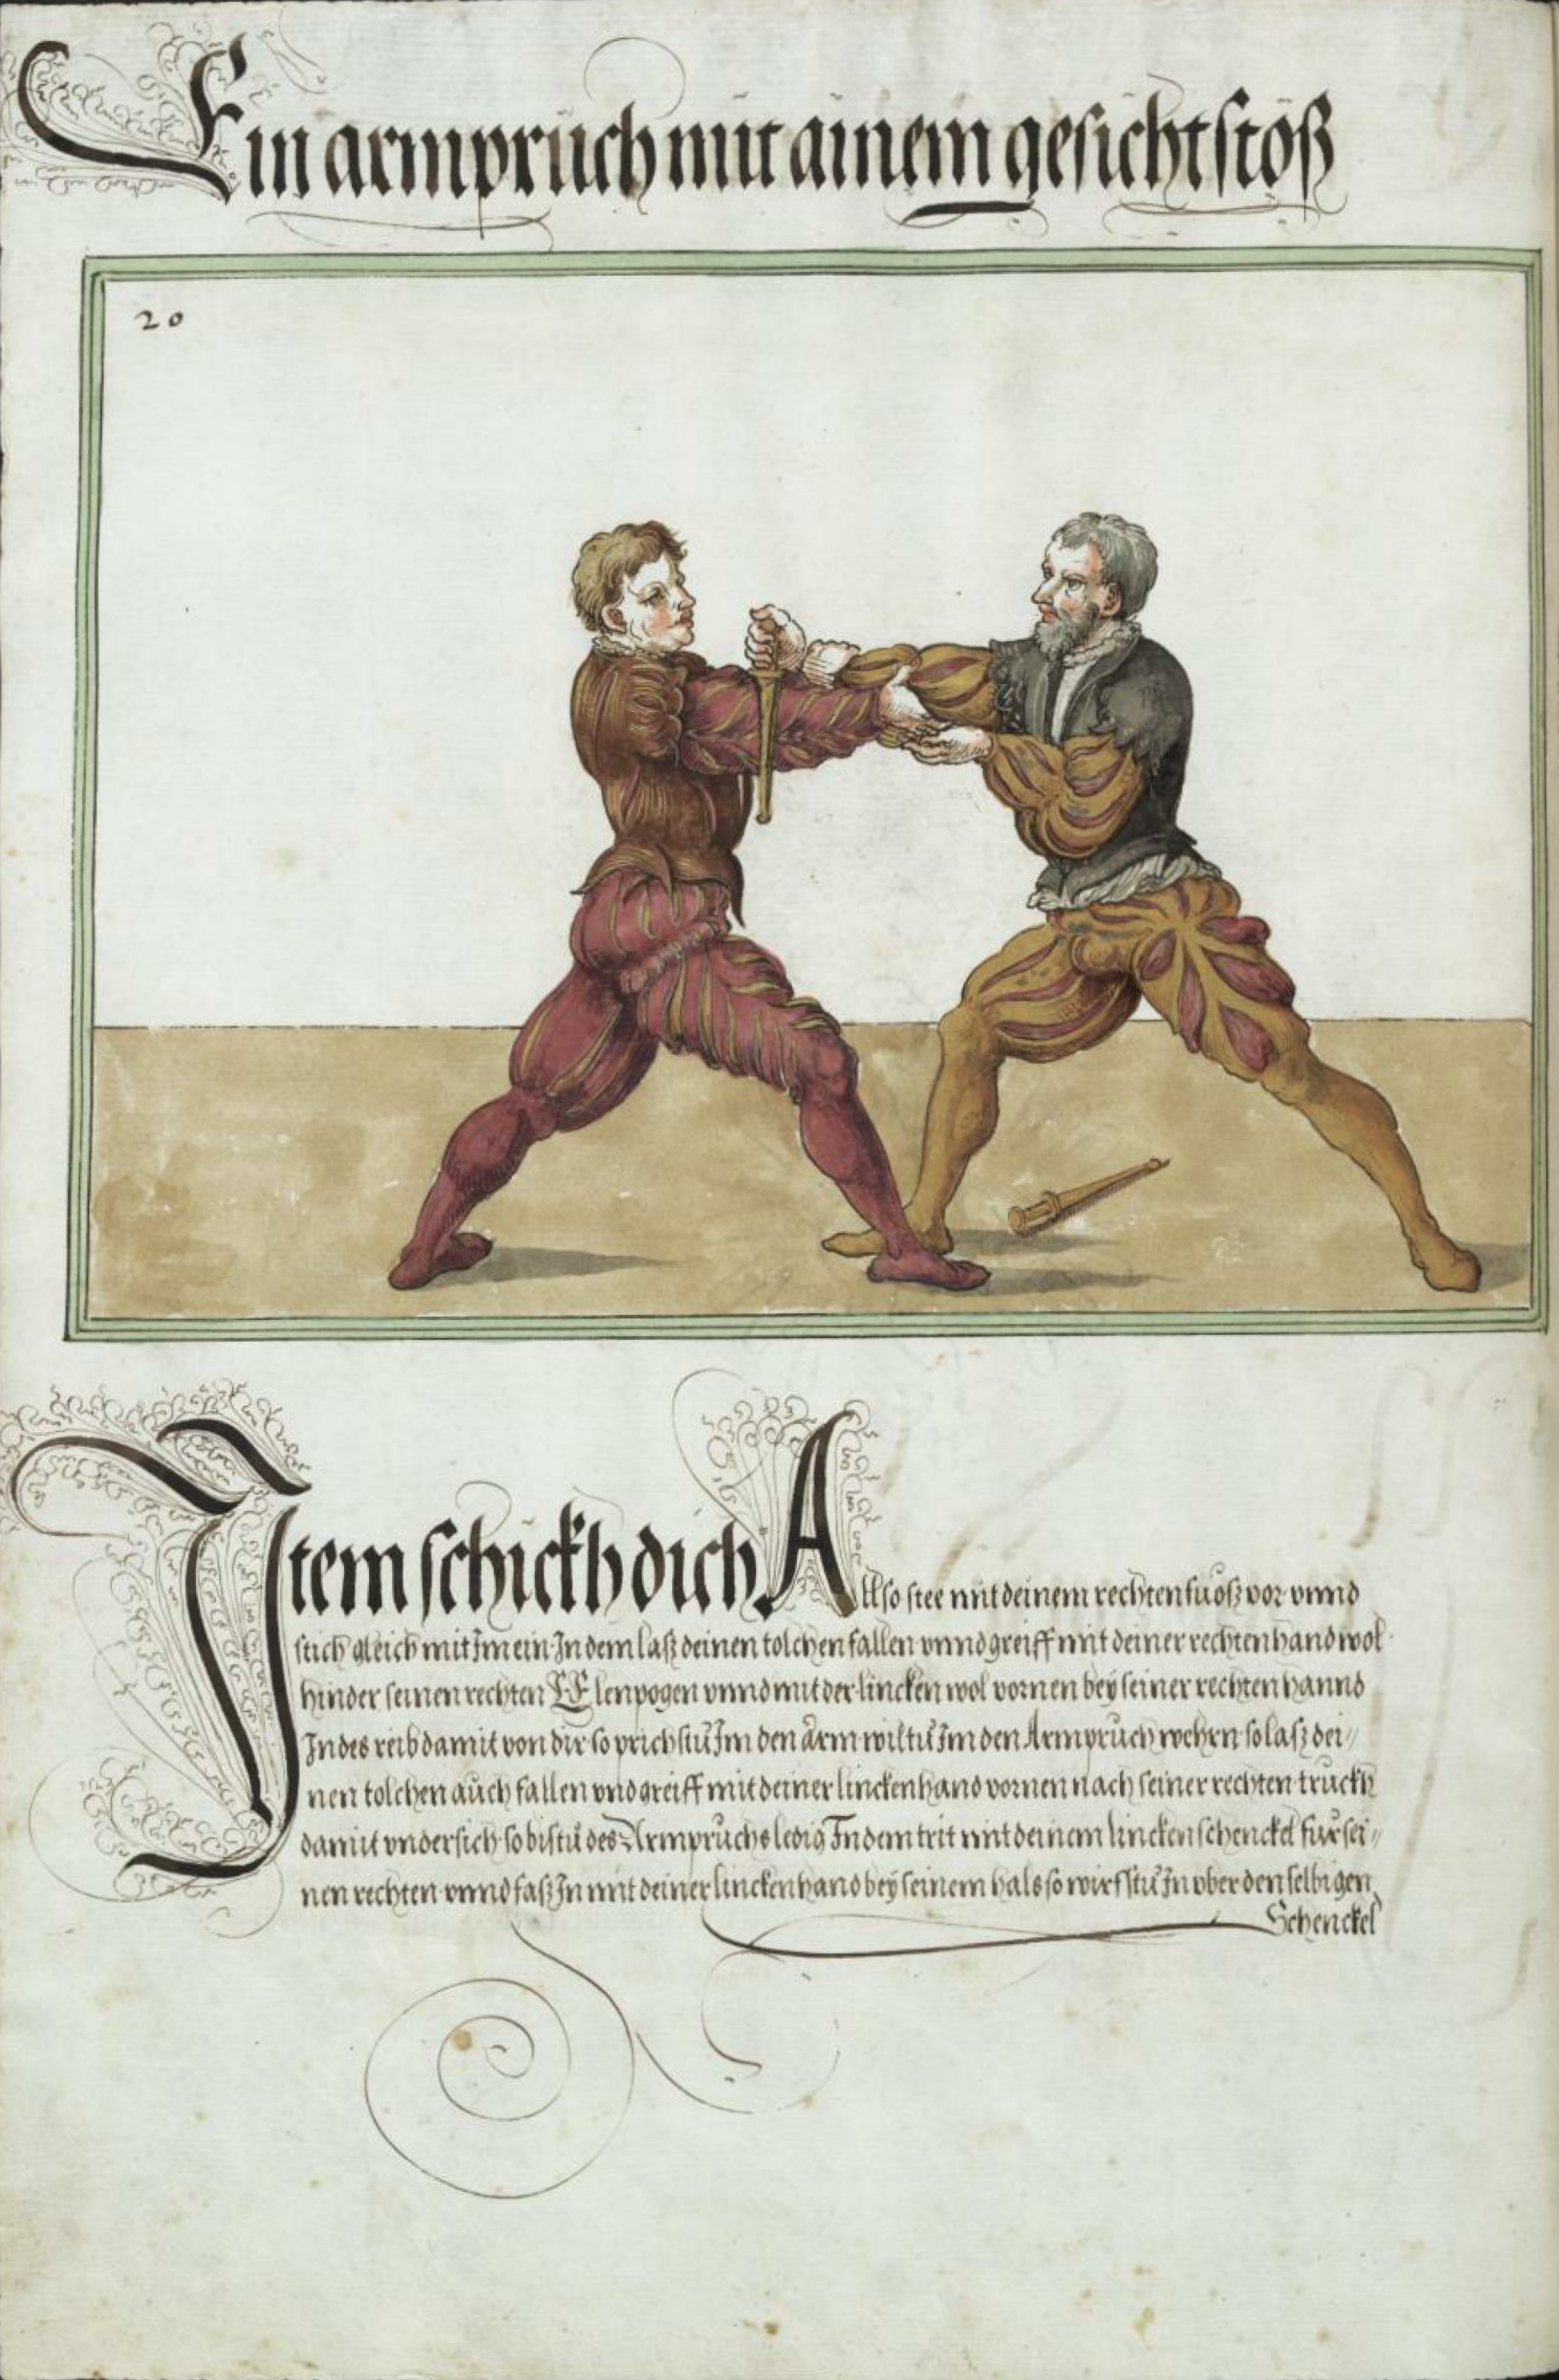 Ein armpruch mit ainem gesichtstöß
20
Item schickh dich Allso stee mit deinem rechten fuoß vor vnnd
stich gleich mit Im ein In dem laß deinen tolchen fallen vnnd greiff mit deiner rechten hand wol
hinder seinen rechten Elenpogen vnnd mit der lincken wol vornen bey seiner rechten hannd
Indes reib damit von dir so prichstu Im den arm wiltu Im den Armpruch wehrn so laß dei//
nen tolchen auch fallen vnd greiff mit deiner lincken hand vornen nach seiner rechten truckh
damit vndersich so bistu des Armpruchs ledig In dem trit mit deinem lincken schenckel fur sei//
nen rechten vnnd faß In mit deiner lincken hand bey seinem hals so wirfstu In vber den selbigen
Schenckel